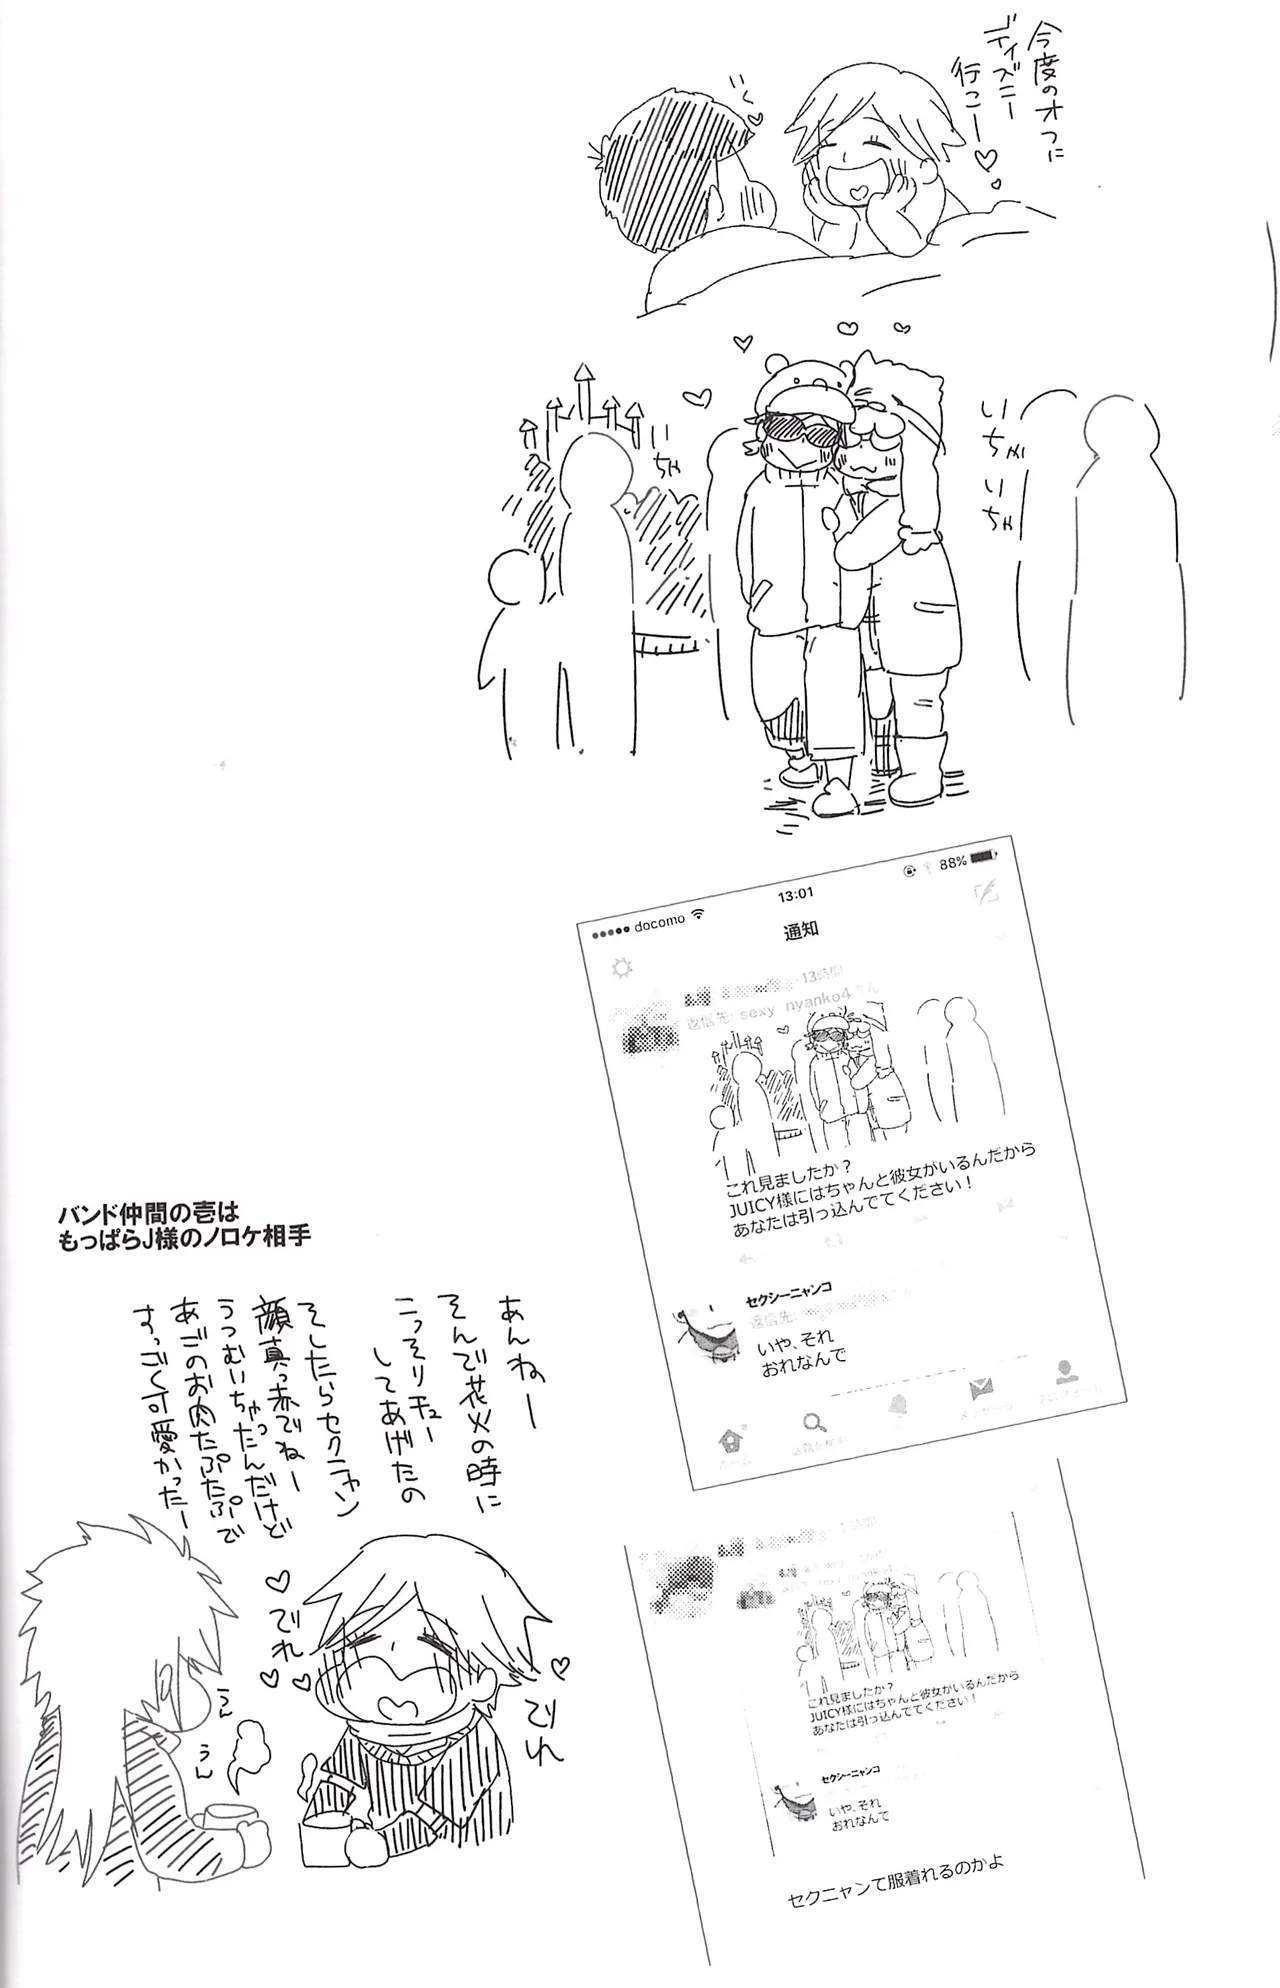 今度のオフに
ディズニー
行こー♡
いく
いちゃ
いちゃ
いちゃ
docomo
13:01
88%
通知
13時間
返信先: sexy_nyanko4さん
これ見ましたか？
JUICY様にはちゃんと彼女がいるんだから
あなたは引っ込んでてください！
セクシーニャンコ
返信先:
いや、それ
おれなんで
ホーム
メッセージ
バンド仲間の壱は
もっぱらJ様のノロケ相手
あんねー
そんで花火の時に
こっそりチュー
してあげたの
そしたらセクニャン
顔真っ赤でねー
うつむいちゃったんだけど
あごのお肉たぷたぷで
すっごく可愛かったー
でれ
でれ
うん
うん
これ見ましたか？
JUICY様にはちゃんと彼女がいるんだから
あなたは引っ込んでてください！
セクシーニャンコ
いや、それ
おれなんで
セクニャンて服着れるのかよ